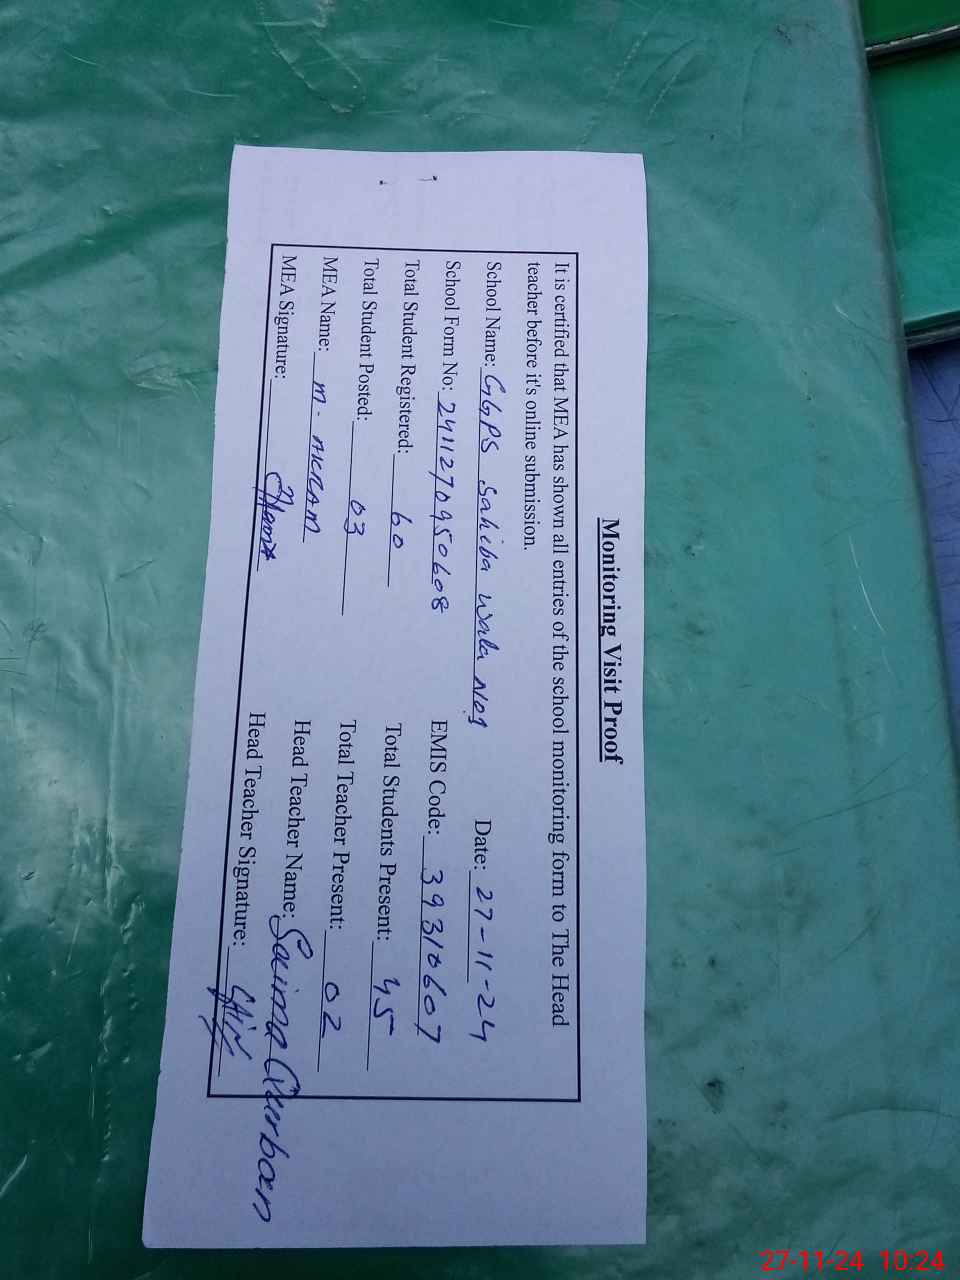 Monitoring Visit Proof
It is certified that MEA has shown all entries of the school monitoring form to The Head
teacher before it's online submission.
School Name: GGPS Sahiba Wala No1 Date: 27-11-24
School Form No: 2411270950608 EMIS Code: 39310607
Total Student Registered: 60 Total Students Present: 45
Total Student Posted: 03 Total Teacher Present: 02
MEA Name: M. AKRAM Head Teacher Name: Saima Qurban
MEA Signature: Head Teacher Signature:
27-11-24 10:24